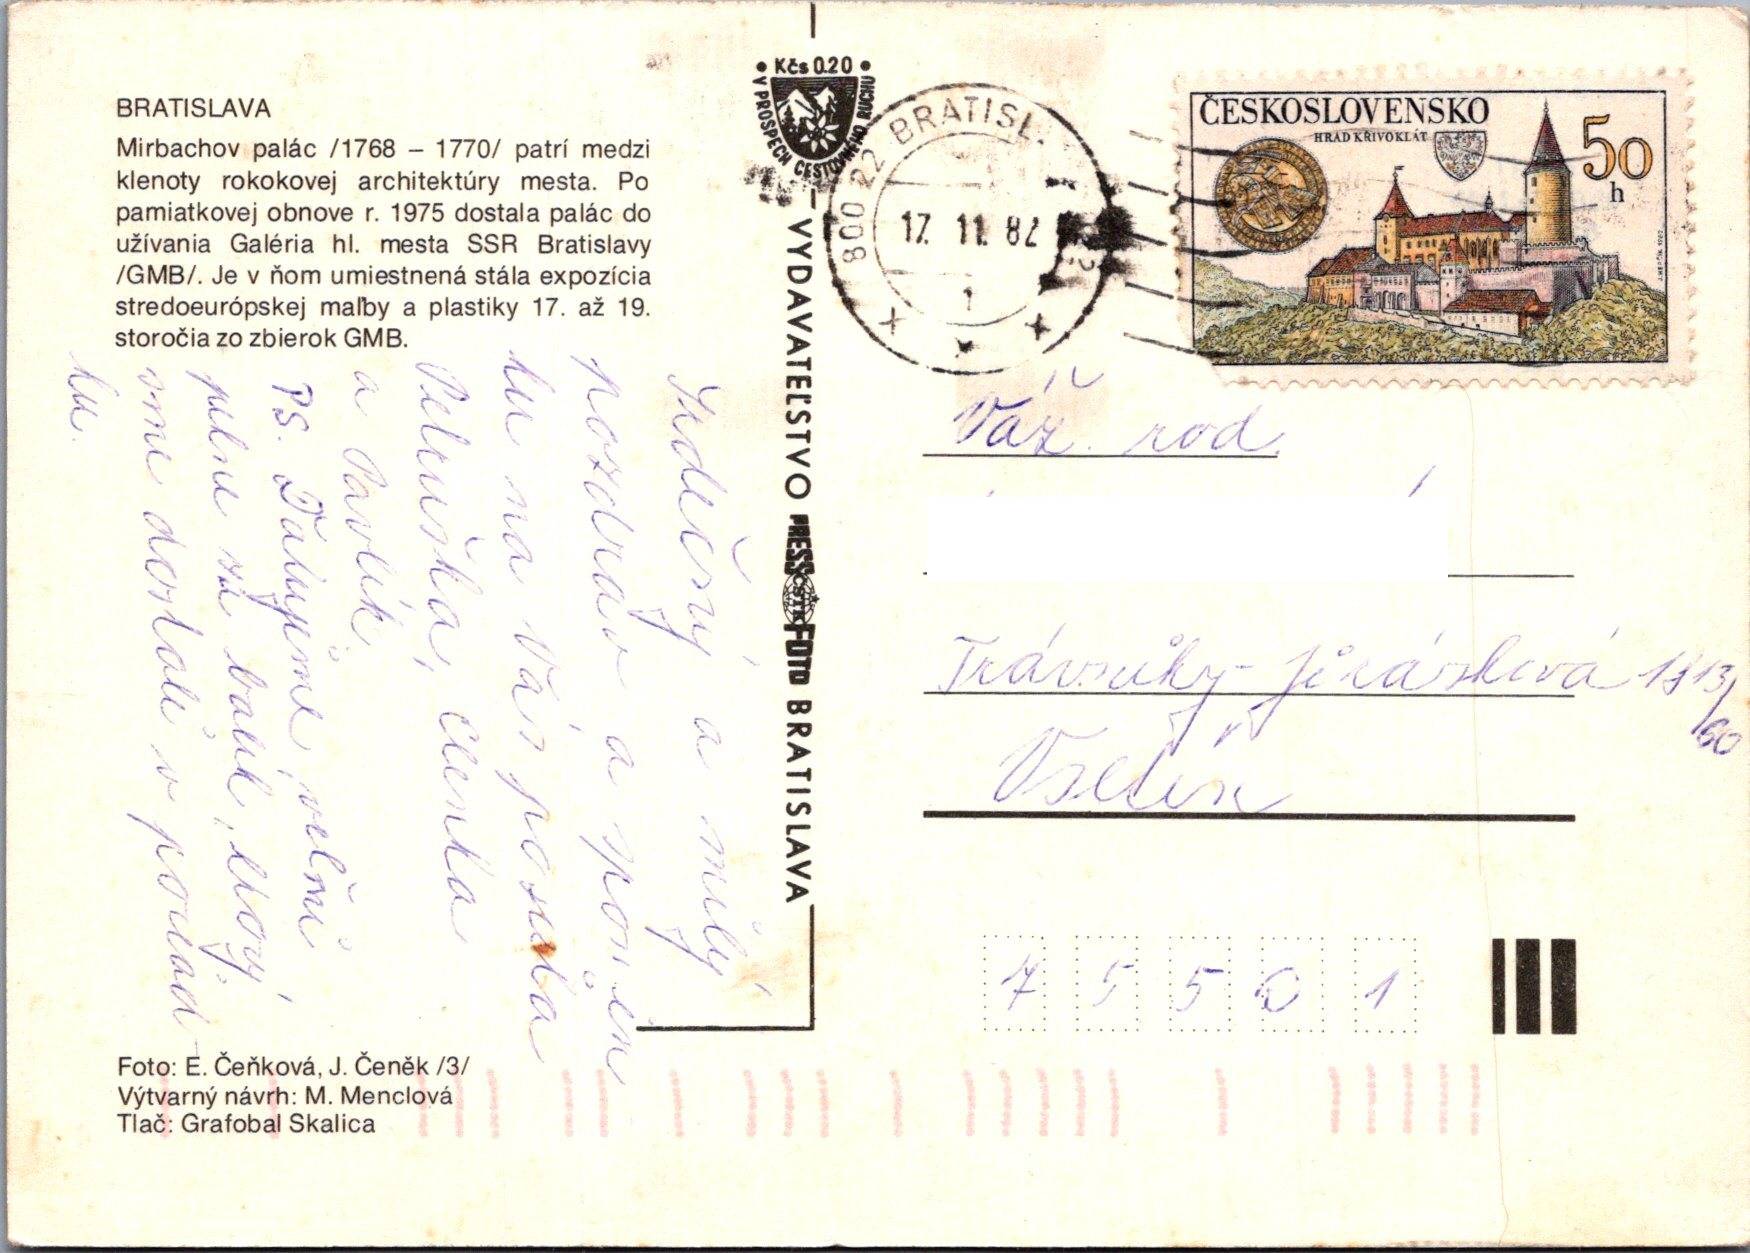 BRATISLAVA
Mirbachov palác /1768 – 1770/ patrí medzi
klenoty rokokovej architektúry mesta. Po
pamiatkovej obnove r. 1975 dostala palác do
užívania Galéria hl. mesta SSR Bratislavy
/GMB/. Je v ňom umiestnená stála expozícia
stredoeurópskej maľby a plastiky 17. až 19.
storočia zo zbierok GMB.
Srdečný a milý
pozdrav a spomien
ku na Vás posiela
a Pavlík
PS. Ďakujeme veľmi
pekne za balík, ktorý
sme dostali v poriad
ku.
Foto: E. Čeňková, J. Čeněk /3/
Výtvarný návrh: M. Menclová
Tlač: Grafobal Skalica
• Kčs 0.20 •
V PROSPECH CESTOVNÉHO RUCHU
VYDAVATEĽSTVO PRESSFOTO BRATISLAVA
ČSTK
800 22 BRATISL
17. 11. 82
1
ČESKOSLOVENSKO
HRAD KŘIVOKLÁT
50
h
Váž. rod.
Trávníky - Jirásková 1813/
60
Vsetín
7 5 5 0 1